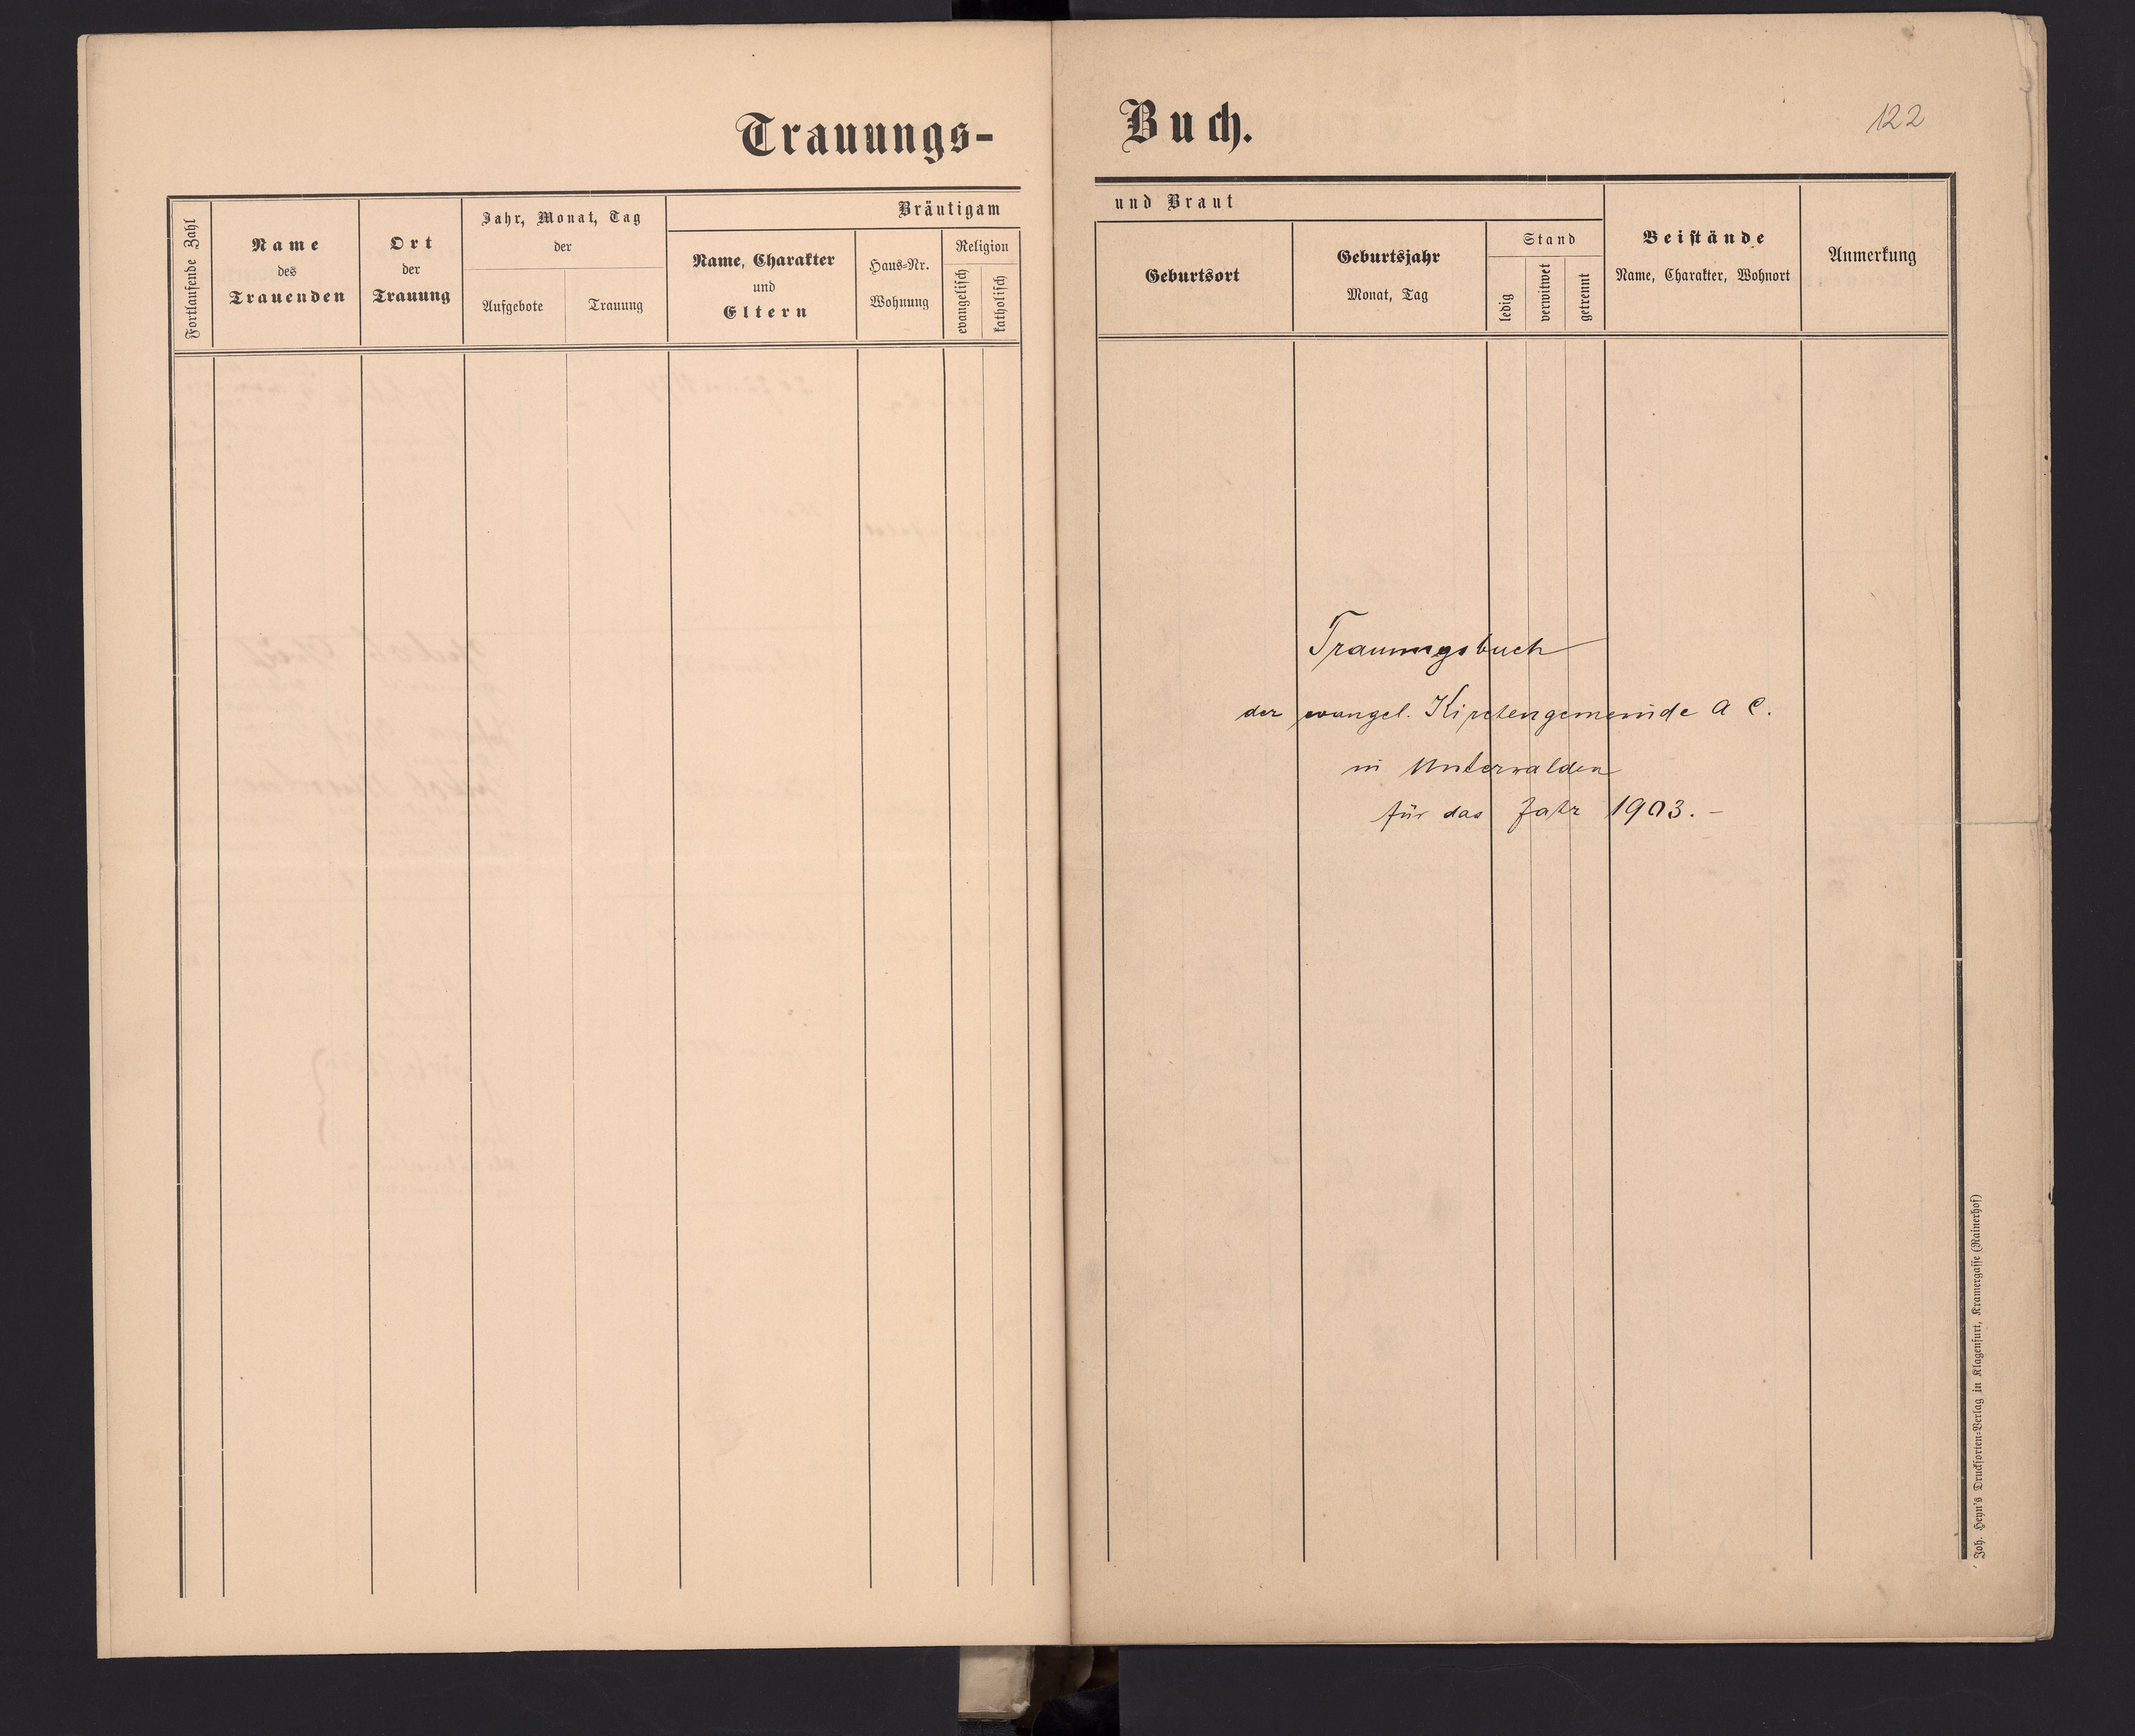 Trauungs-
Buch.
122
Fortlaufende Zahl
Name
des
Trauenden
Ort
der
Trauung
Jahr, Monat, Tag
der
Aufgebote
Trauung
Bräutigam
Name, Charakter
und
Eltern
Haus=Nr.
Wohnung
Religion
evangelisch
katholisch
und Braut
Geburtsort
Geburtsjahr
Monat, Tag
Stand
ledig
verwitwet
getrennt
Beistände
Name, Charakter, Wohnort
Anmerkung
Trauungsbuch
der evangel. Kirchengemeinde A C.
in Unterwalden
für das Jahr 1903. -
Joh. Heyn's Drucksorten=Verlag in Klagenfurt, Kramergasse (Rainerhof)